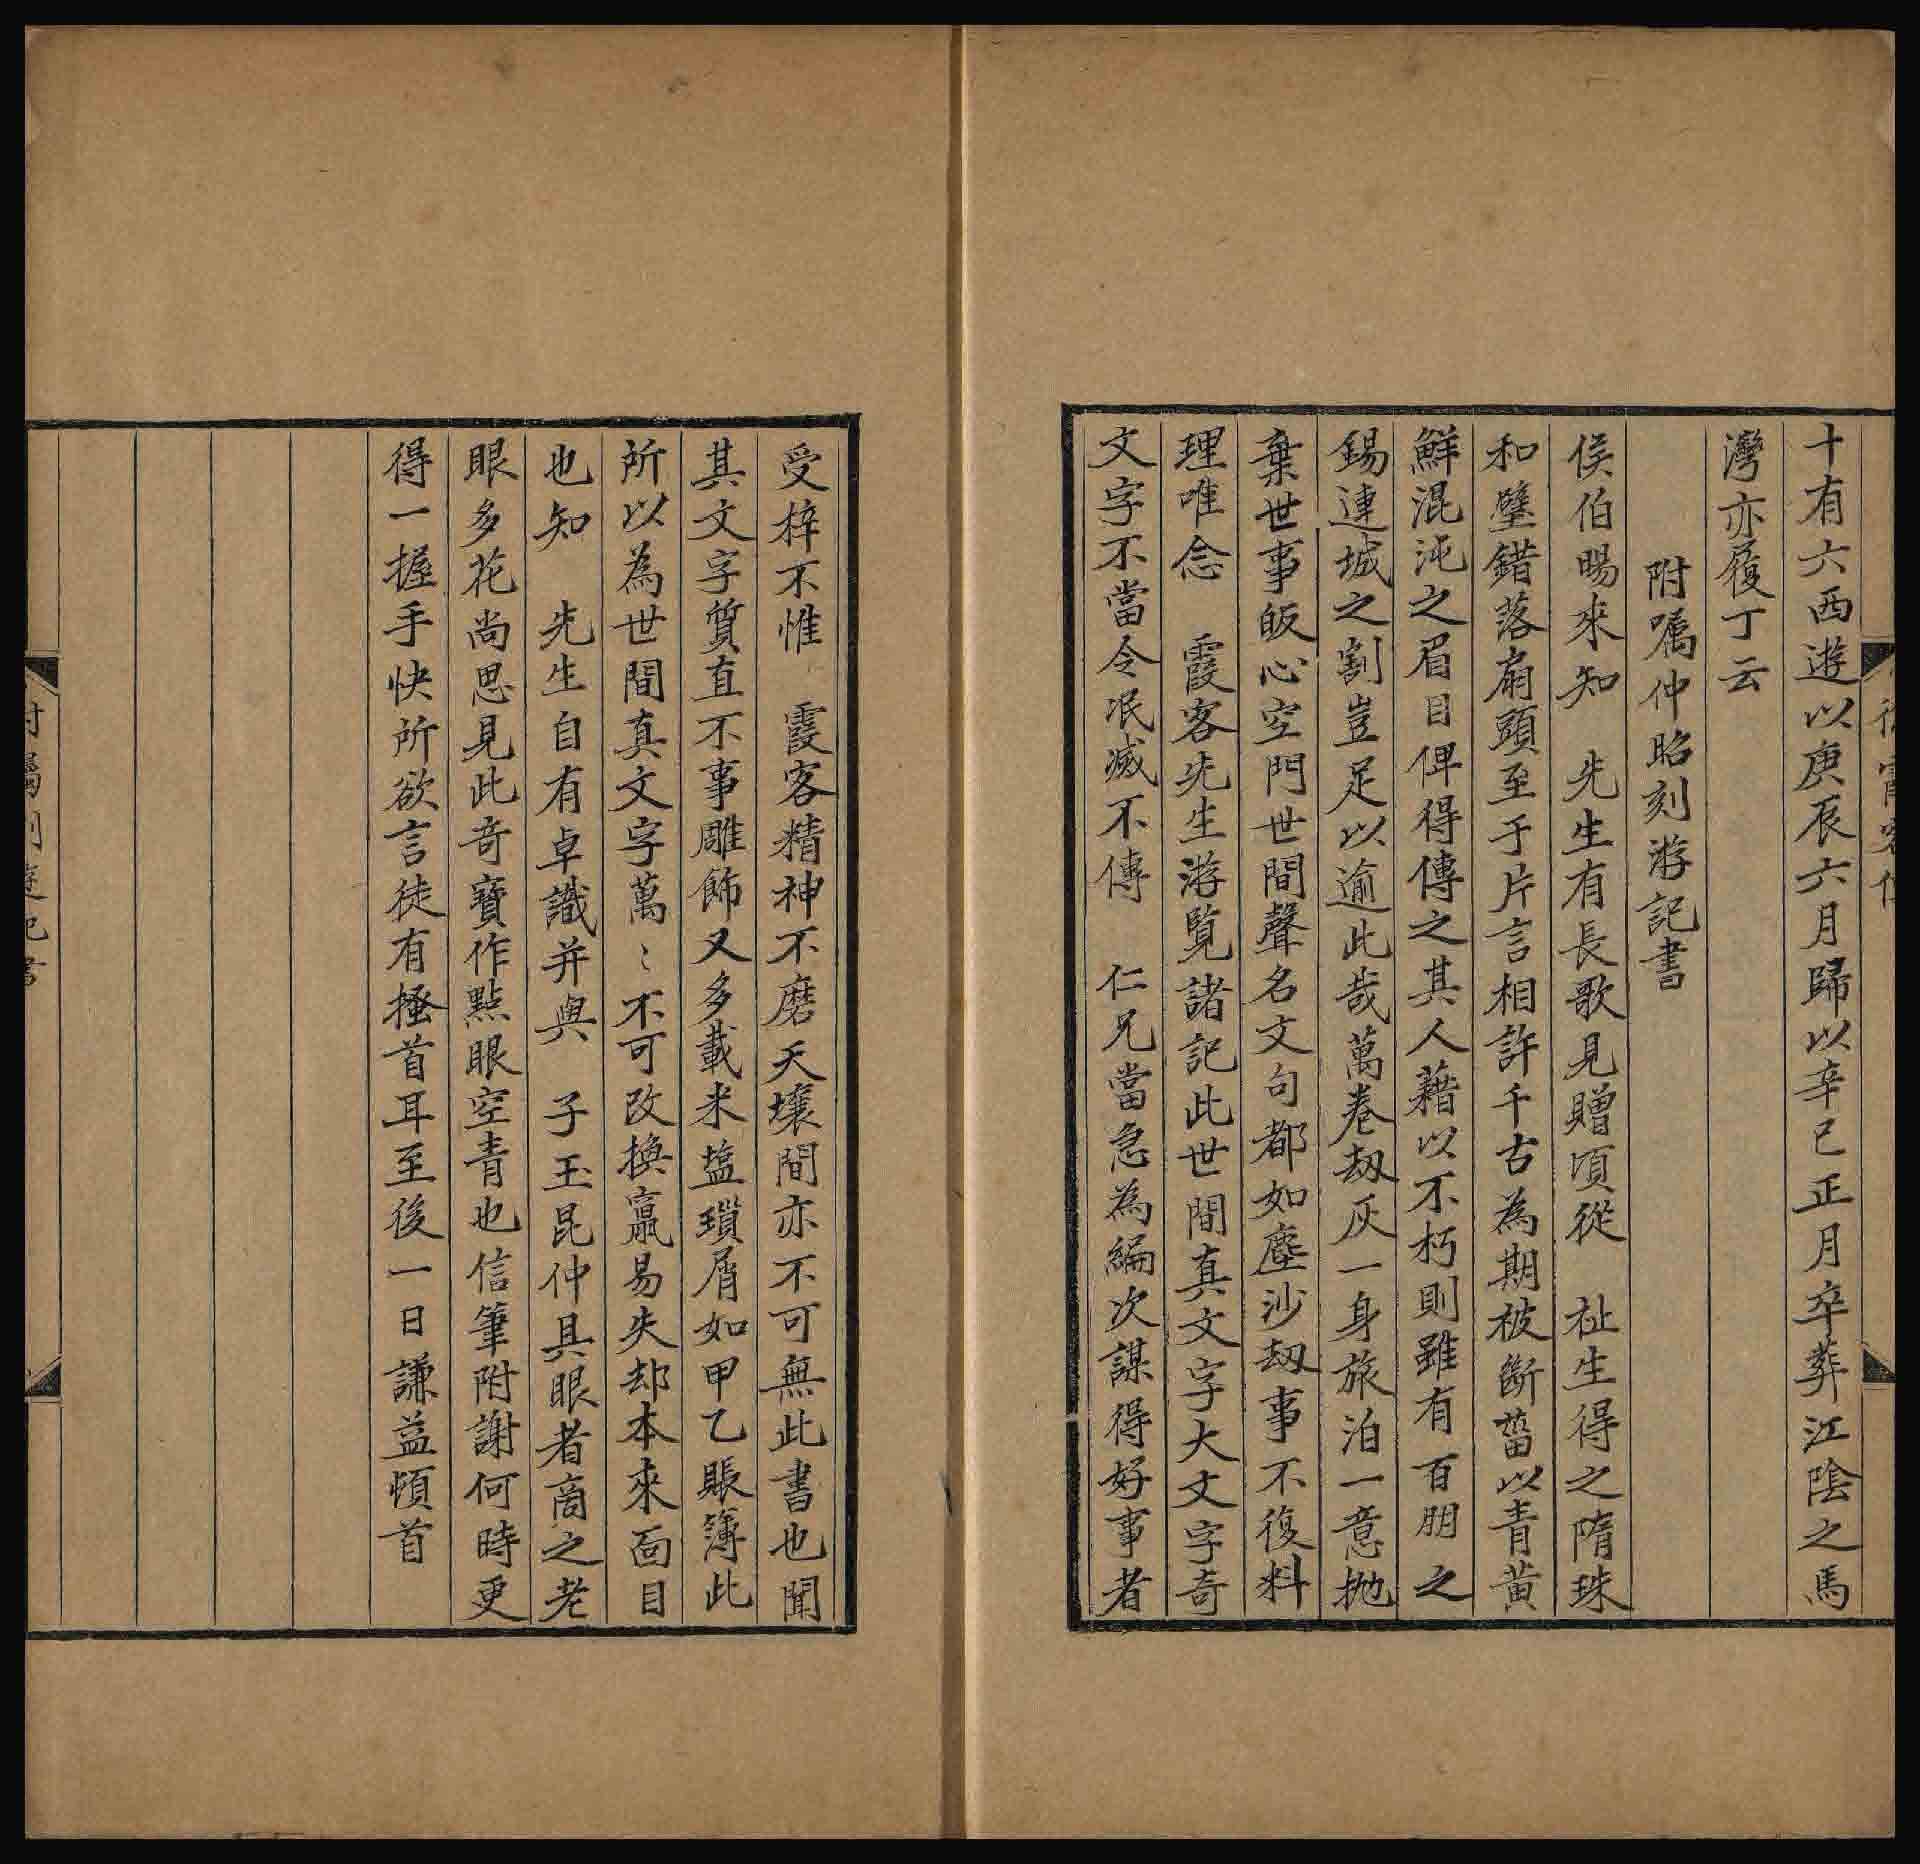 十有六西遊以庚辰六月歸以辛巳正月卒葬江陰之馬
灣亦履丁云
附囑仲昭刻游記書
侯伯暘來知　先生有長歌見贈頃從　祉生得之隋珠
和璧錯落扇頭至于片言相許千古為期被斷菑以青黃
鮮混沌之眉目俾得傳之其人藉以不朽則雖有百朋之
錫連城之割豈足以逾此哉萬卷刼灰一身旅泊一意拋
棄世事皈心空門世間聲名文句都如塵沙刼事不復料
理唯念　霞客先生游覧諸記此世間真文字大文字奇
文字不當令泯滅不傳　仁兄當急為編次謀得好事者
受梓不惟　霞客精神不磨天壤間亦不可無此書也聞
其文字質直不事雕飾又多載米塩瑣屑如甲乙賬簿此
所以為世間真文字萬〻不可改換竄易失却本來面目
也知　先生自有卓識并與　子玉昆仲具眼者商之老
眼多花尚思見此奇寶作點眼空青也信筆附謝何時更
得一握手快所欲言徒有搔首耳至後一日謙益頓首
附囑刻遊記書